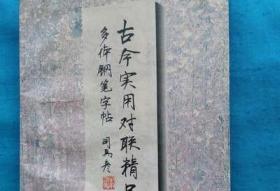 古今实用对联精
多体钢笔字帖
司马彦